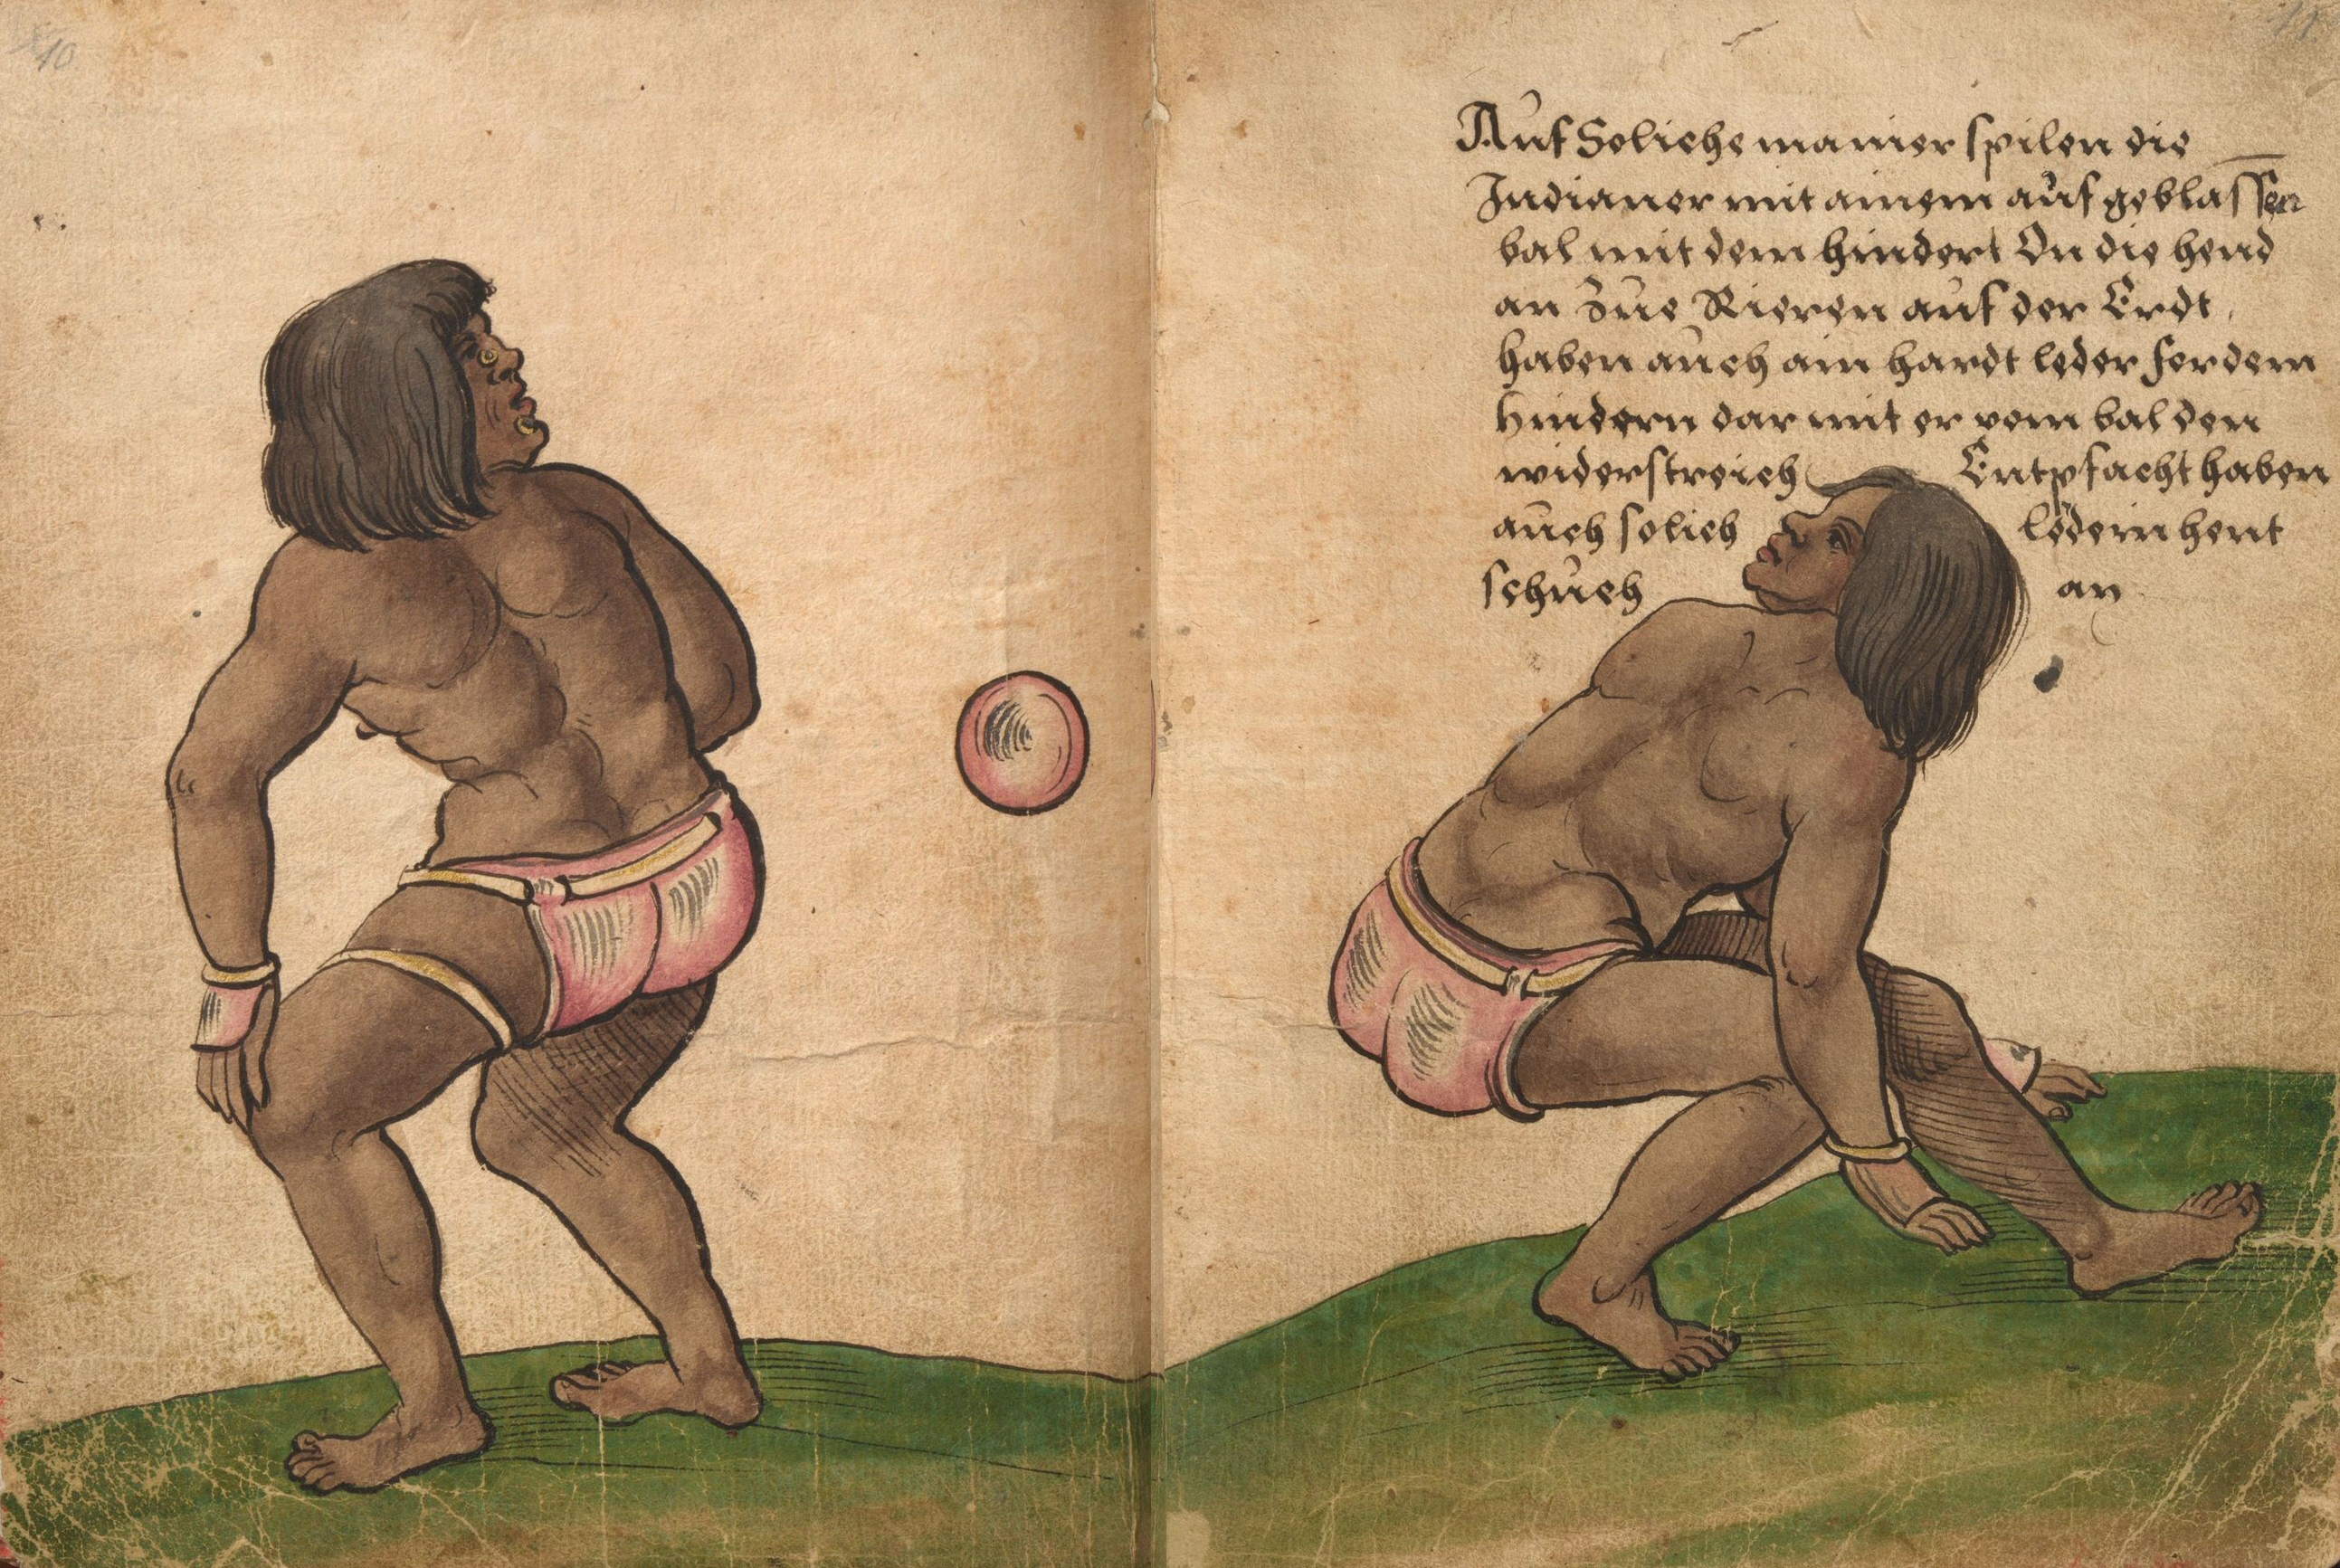 10
11
Auf Soliche manier spilen die
Indianer mit ainem aufgeblassen
bal mit dem hindert On die hend
an zue Rieren auf der Erdt
haben auch ain hardt leder fer dem
hindern dar mit er vom bal den
widerstreich Entpfacht haben
auch solich ledern hent
schuch an